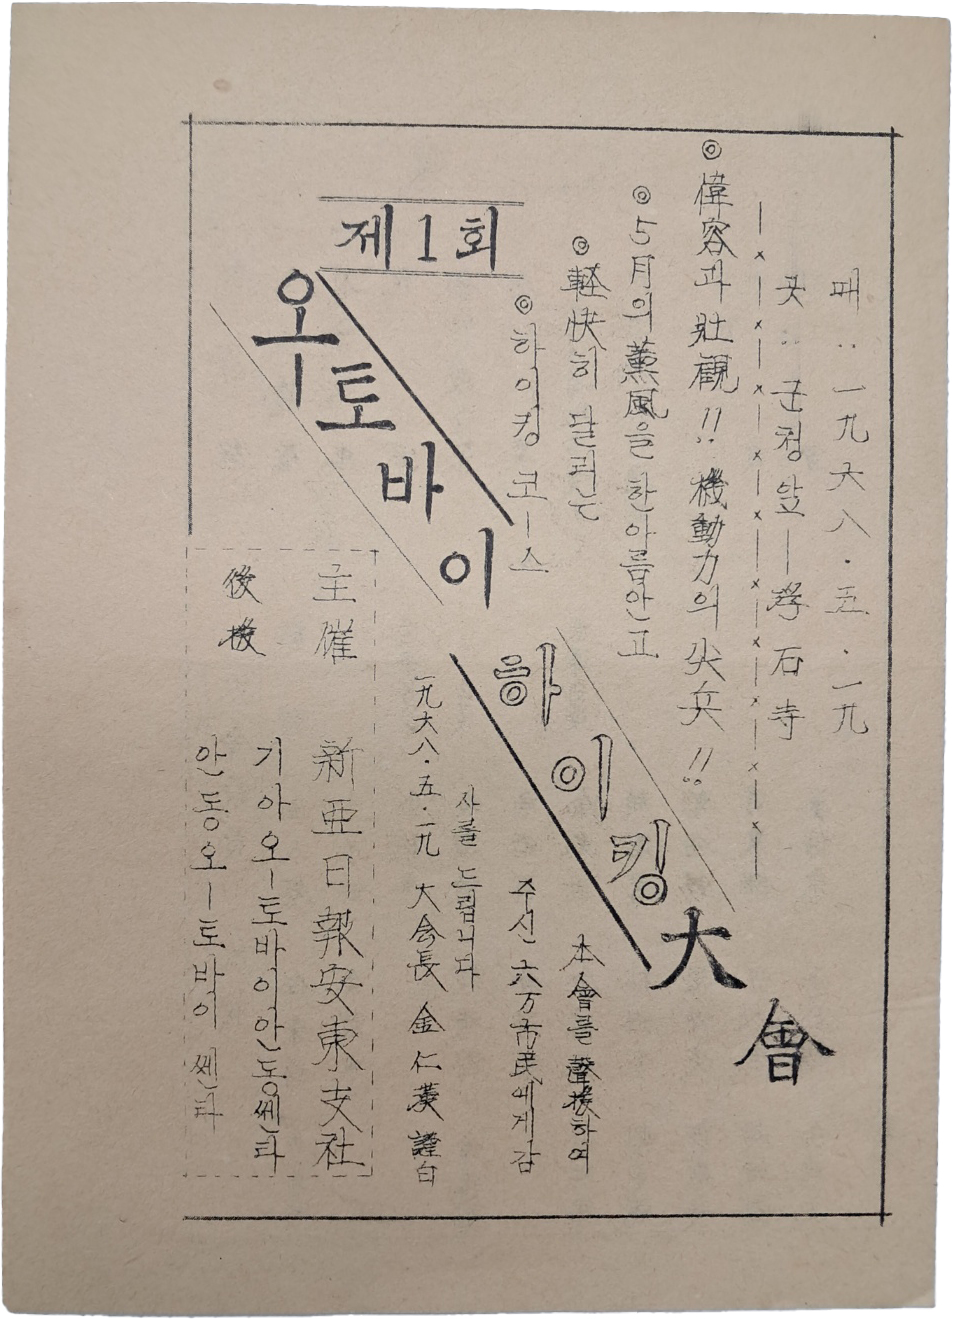 때 : 一九六八.五.一九
곳 : 군청앞 — 石寺
◎偉容과 壯観!! 機動力의 尖兵!!
◎5月의 薰風을 한아름안고
◎軽快히 달리는
◎하이킹 코ー스
제1회
오토바이 하이킹 大會
本會를 聲援하여
주신 六万市民에게 감
사를 드립니다
一九六八.五.一九 大会長 金仁漢 謹白
主催 新亜日報安東支社
後援 기아오ー토바이안동쎈타
안동오ー토바이 쎈타